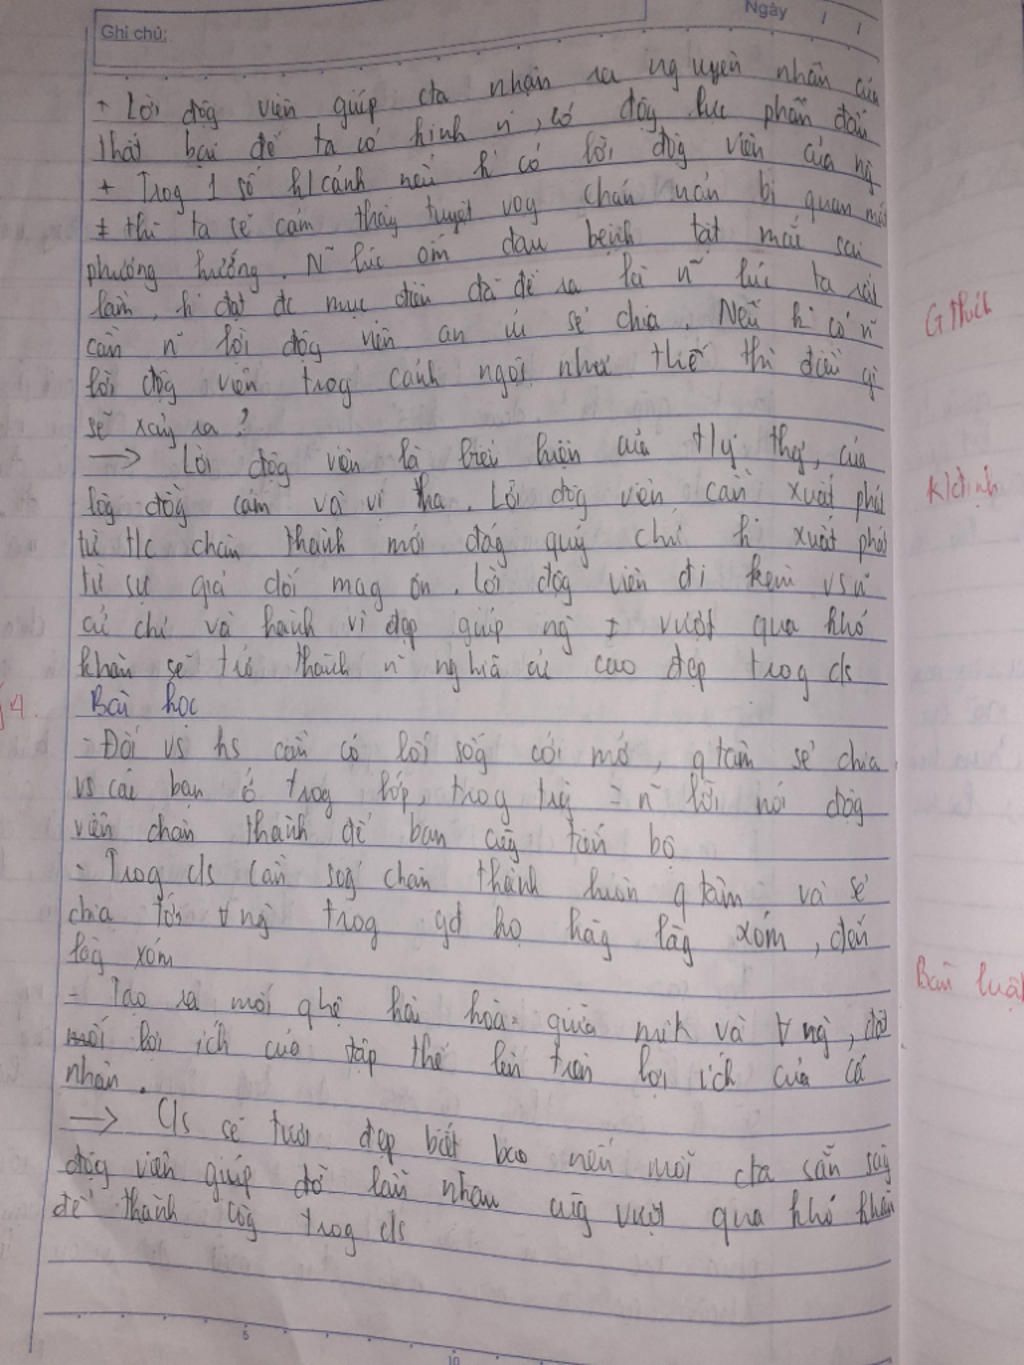 Ghi chú:
Ngày / /
+ Lời độg viên giúp cta nhận ra nguyên nhân của
thất bại để ta có kinh n, có độg lực phấn đấu
+ Trog 1 số h/cảnh nếu k có lời độg viên của ng
≠ thì ta sẽ cảm thấy tuyệt vog chán nản bi quan mất
phương hướng. N~ lúc ốm đau bệnh tật mắc sai
lầm, k đạt đc mục tiêu đã đề ra là n~ lúc ta rất
cần n~ lời độg viên an ủi sẻ chia. Nếu k có n~
lời độg viên trog cảnh ngộ như thế thì điều gì
sẽ xảy ra?
→ Lời độg viên là biểu hiện của t/y thg, của
lòg đồg cảm và vị tha. Lời độg viên cần xuất phát
từ t/c chân thành mới đág quý chứ k xuất phát
từ sự giả dối mag ơn. Lời độg viên đi kèm vs n~
cử chỉ và hành vi đẹp giúp ng ≠ vượt qua khó
khăn sẽ trở thành n~ nghĩa cử cao đẹp trog c/s
4.
Bài học
- Đối vs hs cần có lối sốg cởi mở, q tâm sẻ chia
vs các bạn ở trog lớp, trog trg = n~ lời nói độg
viên chân thành để bạn cùg tiến bộ
- Trog c/s cần sốg chân thành luôn q tâm và sẻ
chia tới ∀ ng trog gđ họ hàg làg xóm, đến
làg xóm
- Tạo ra mối qhệ hài hoà giữa mik và ∀ ng, đặt
lợi ích của tập thể lên trên lợi ích của cá
nhân.
→ C/s sẽ tươi đẹp biết bao nếu mỗi cta sẵn sàg
độg viên giúp đỡ lẫn nhau cùg vượt qua khó khăn
để thành côg trog c/s
G thích
K/định
Bàn luận
5
10